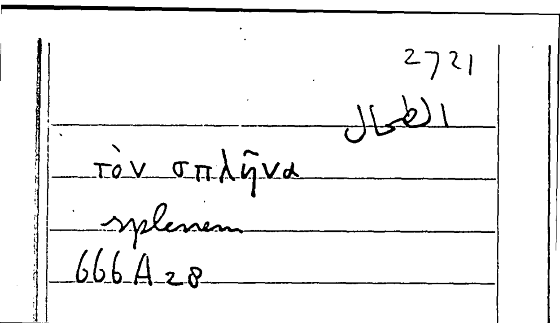 2721
الطحال
τὸν σπλῆνα
splenem
666A28